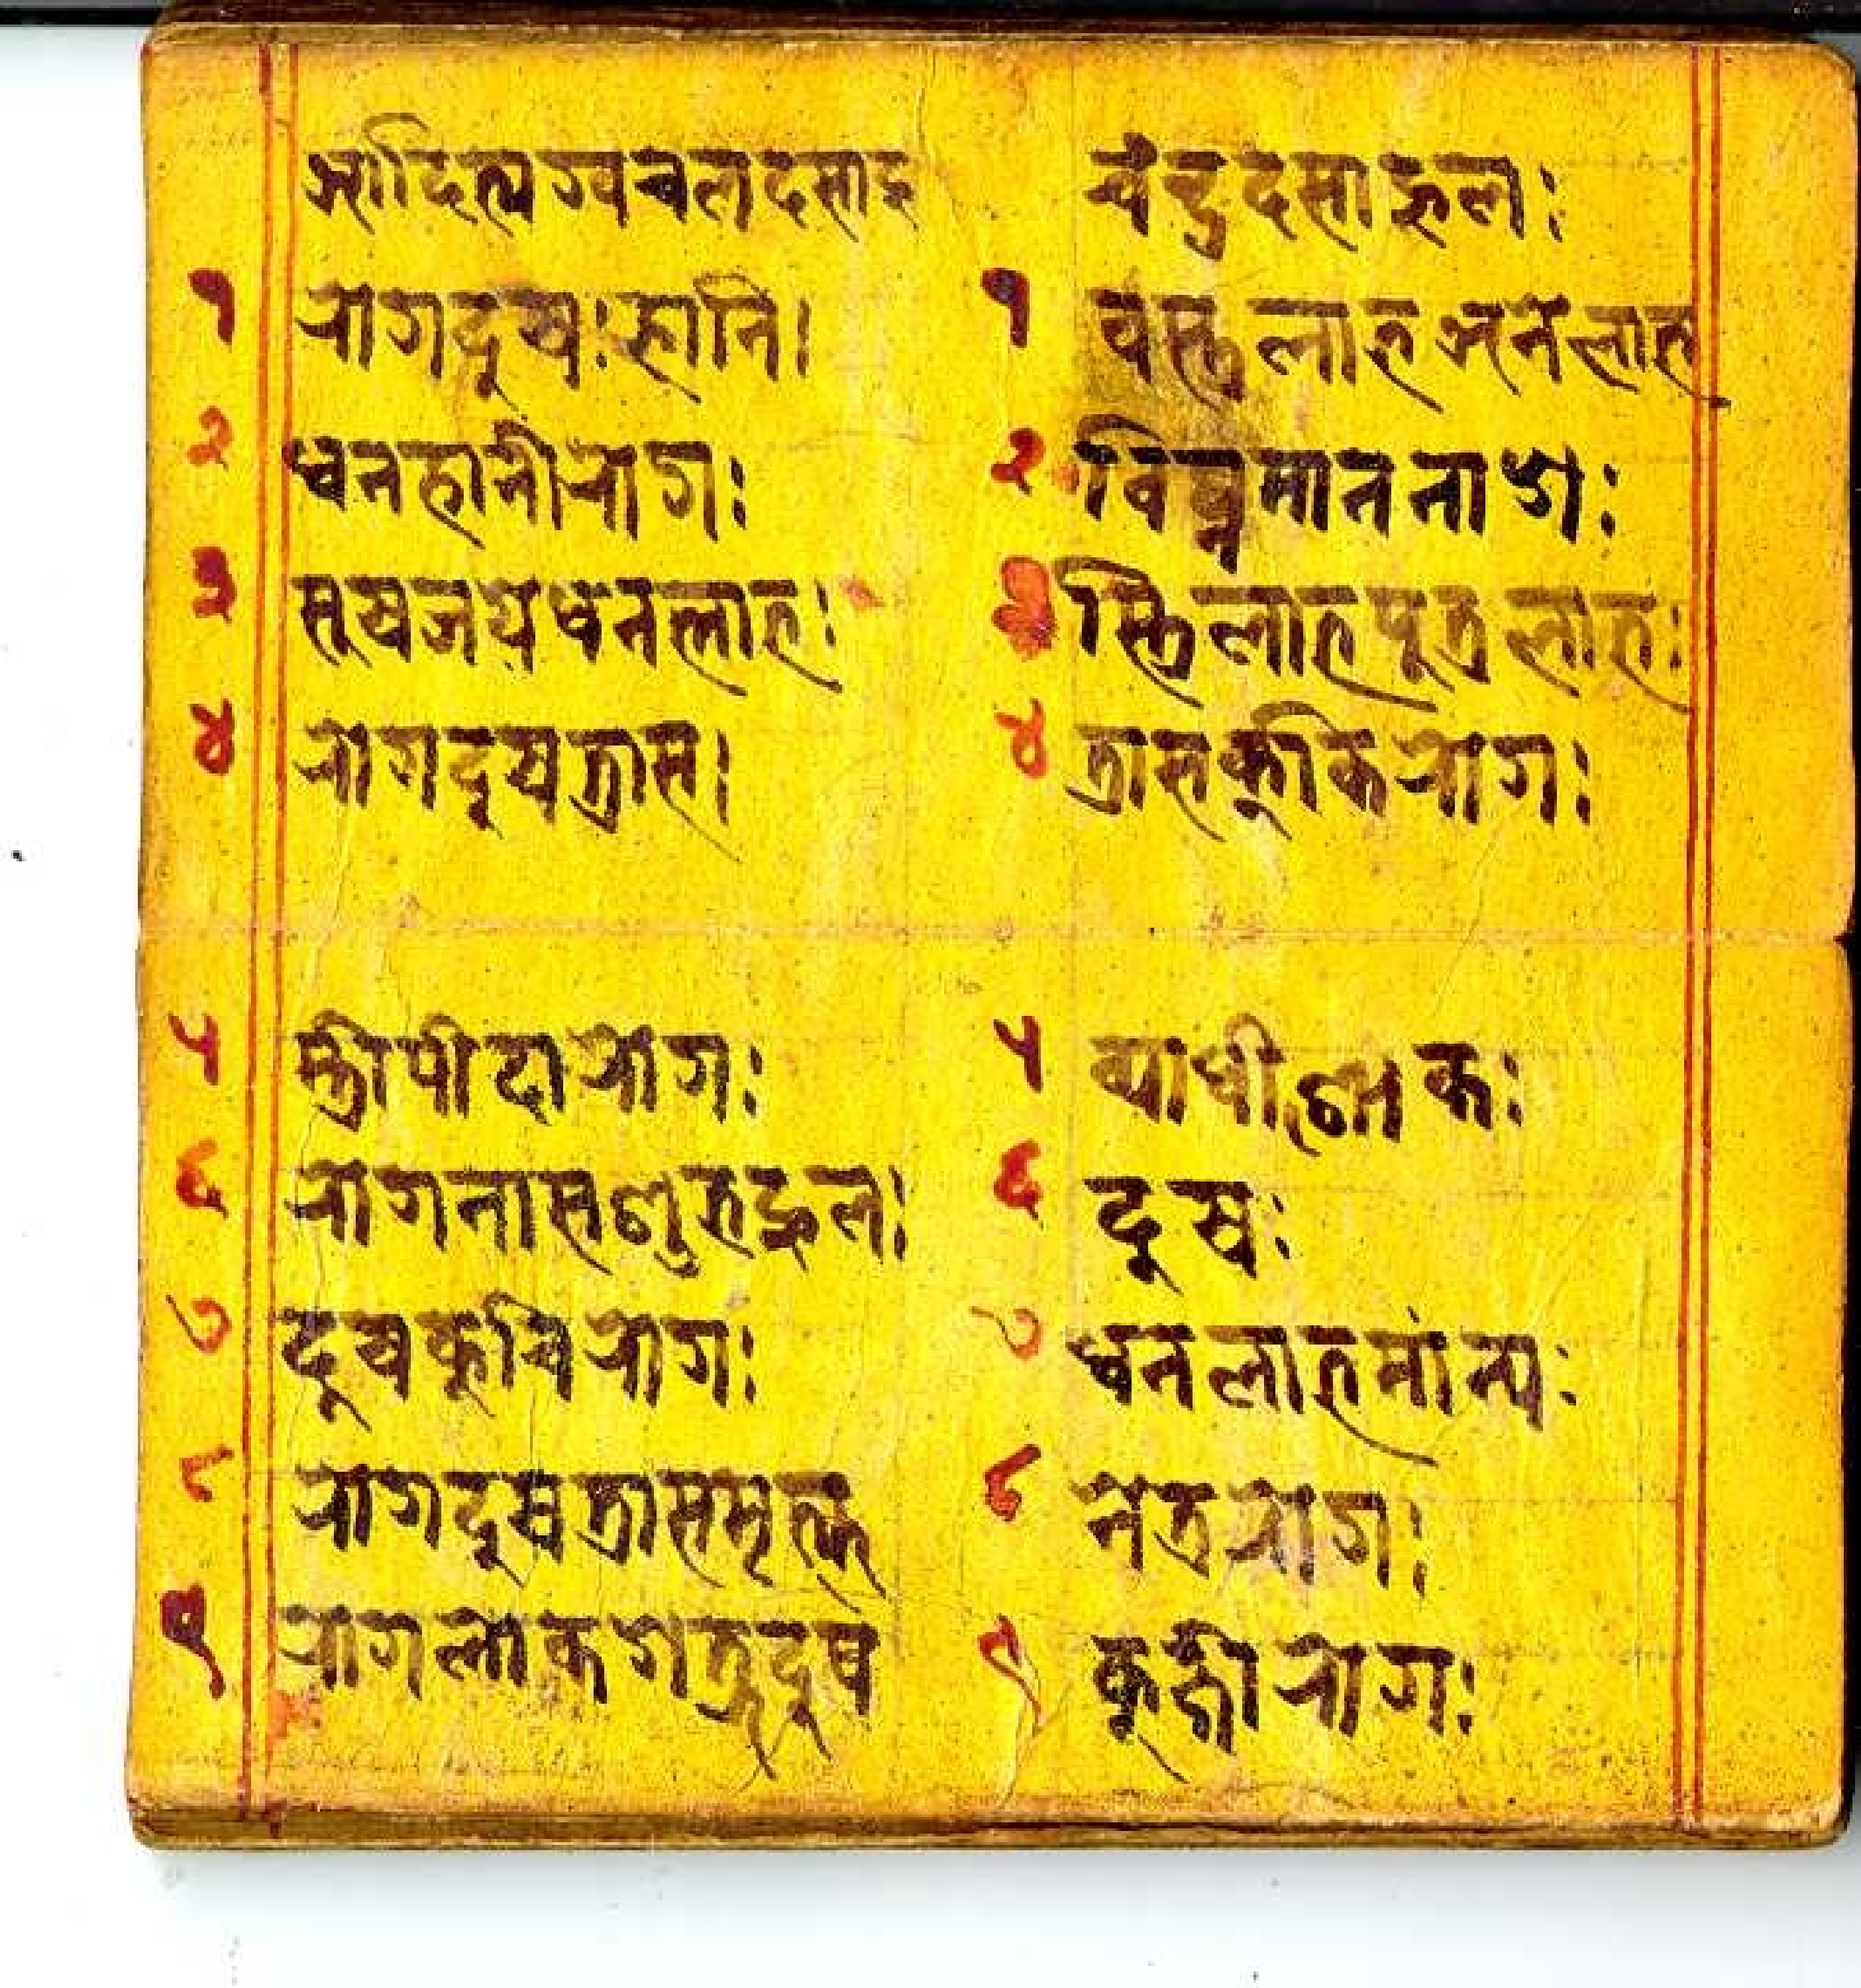 आदित्य ग्वचल दसाफ
१ रोगदूखः हानि।
२ धनहानी रोगः
३ सूखजय धनलाभः
४ रोगदूखत्रास।
५ स्त्रीपीदा रोगः
६ रोगनास शुभफल।
७ दूखकूखि रोगः
८ रोगदूखत्रासमृत्यु
९ रोगलोक शत्रूदूख
चंद्रदसाफलः
१ वस्त्रलाभ अनेलाभ
२ विघ्नमान नाशः
३ स्त्रिलाभ पूत्रलाभः
४ त्रास रोगः
५ व्याधीशोकः
६ दूखः
७ धनलाभमान्यः
८ नेत्ररोगः
९ रोगः